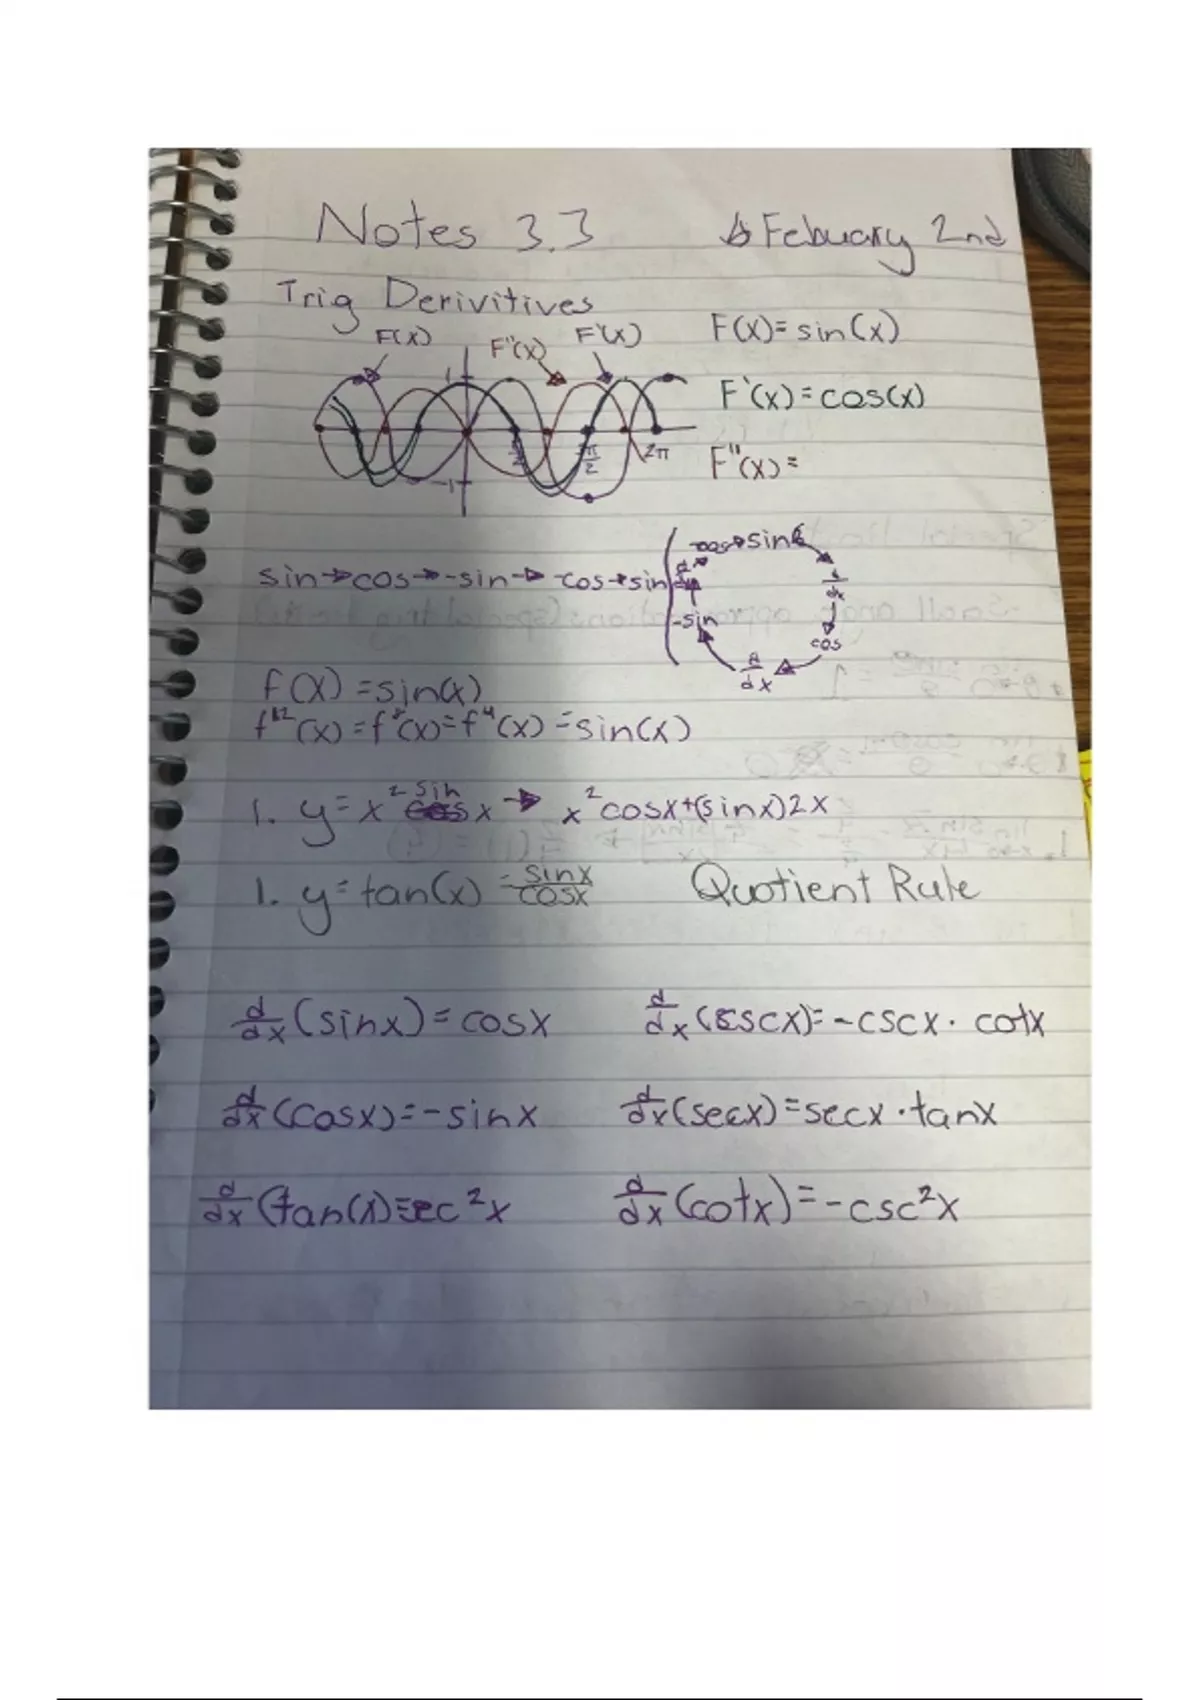 Notes 3.3 Febuary 2nd
Trig Derivitives
F(x) F''(x) F'(x)
F(x)=sin(x)
F'(x)=cos(x)
F''(x)=
1
-1
π/2 3π/2 2π
sin→cos→-sin→-cos→sin
-cos sin d/dx cos d/dx -sin d/dx
f(x)=sin(x)
f¹²(x)=f⁸(x)=f⁴(x)=sin(x)
1. y=x² sin x → x²cosx+(sinx)2x
1. y=tan(x)=sinx/cosx Quotient Rule
d/dx(sinx)=cosx d/dx(cscx)=-cscx·cotx
d/dx(cosx)=-sinx d/dx(secx)=secx·tanx
d/dx(tan(x)=sec²x d/dx(cotx)=-csc²x